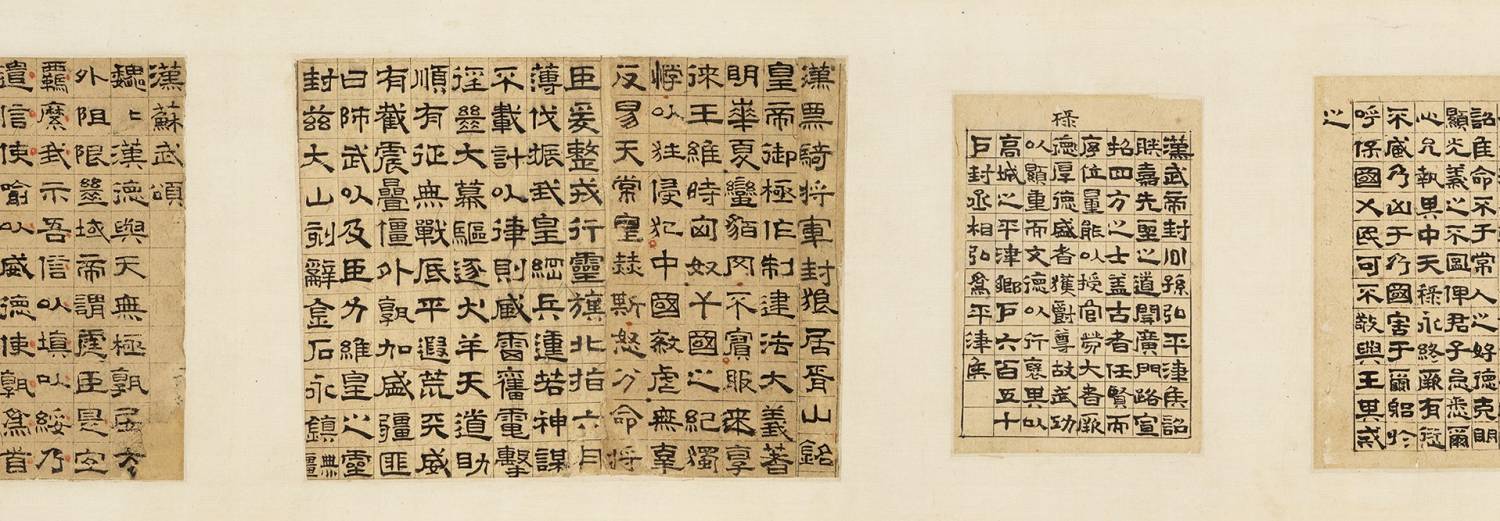 詔隹命不于常人之好德克明
顯光義之不圖俾君子怠悉爾
心允執其中天祿永終厥有愆
不臧乃凶于乃國害于爾躬於
呼保國乂民可不敬與王其戒
之
祿
漢武帝封公孫弘平津侯詔
朕嘉先聖之道開廣門路宣
招四方之士蓋古者任賢而
序位量能以授官勞大者厥
德厚德盛者獲爵尊故武功
以顯重而文德以行褒其以
高城之平津鄉戶六百五十
戶封丞相弘為平津侯
漢票騎將軍封狼居胥山銘
皇帝御極作制建法大義著
明華夏蠻貊罔不賓服來享
徠王維時匈奴丫國之紀獨
悖以狂侵犯中國虐無辜
反易天常寔赫斯怒分命將
臣爰整戎行靈旗北指六月
薄伐振我皇綱兵運若神謀
不載計以律則威雷奮電擊
徑絕大幕驅逐犬羊天道助
順有征無戰底平遐荒天威
有截震疊僵外孰加盛疆匪
曰師武以及臣力維皇之靈
封茲大山刻辭金石永鎮無疆
漢蘇武頌
巍〻漢德與天無極孰居
外阻限絕域帝謂臣是
羈縻我示吾信以填以綏乃
遣信使喻以威德使孰為首